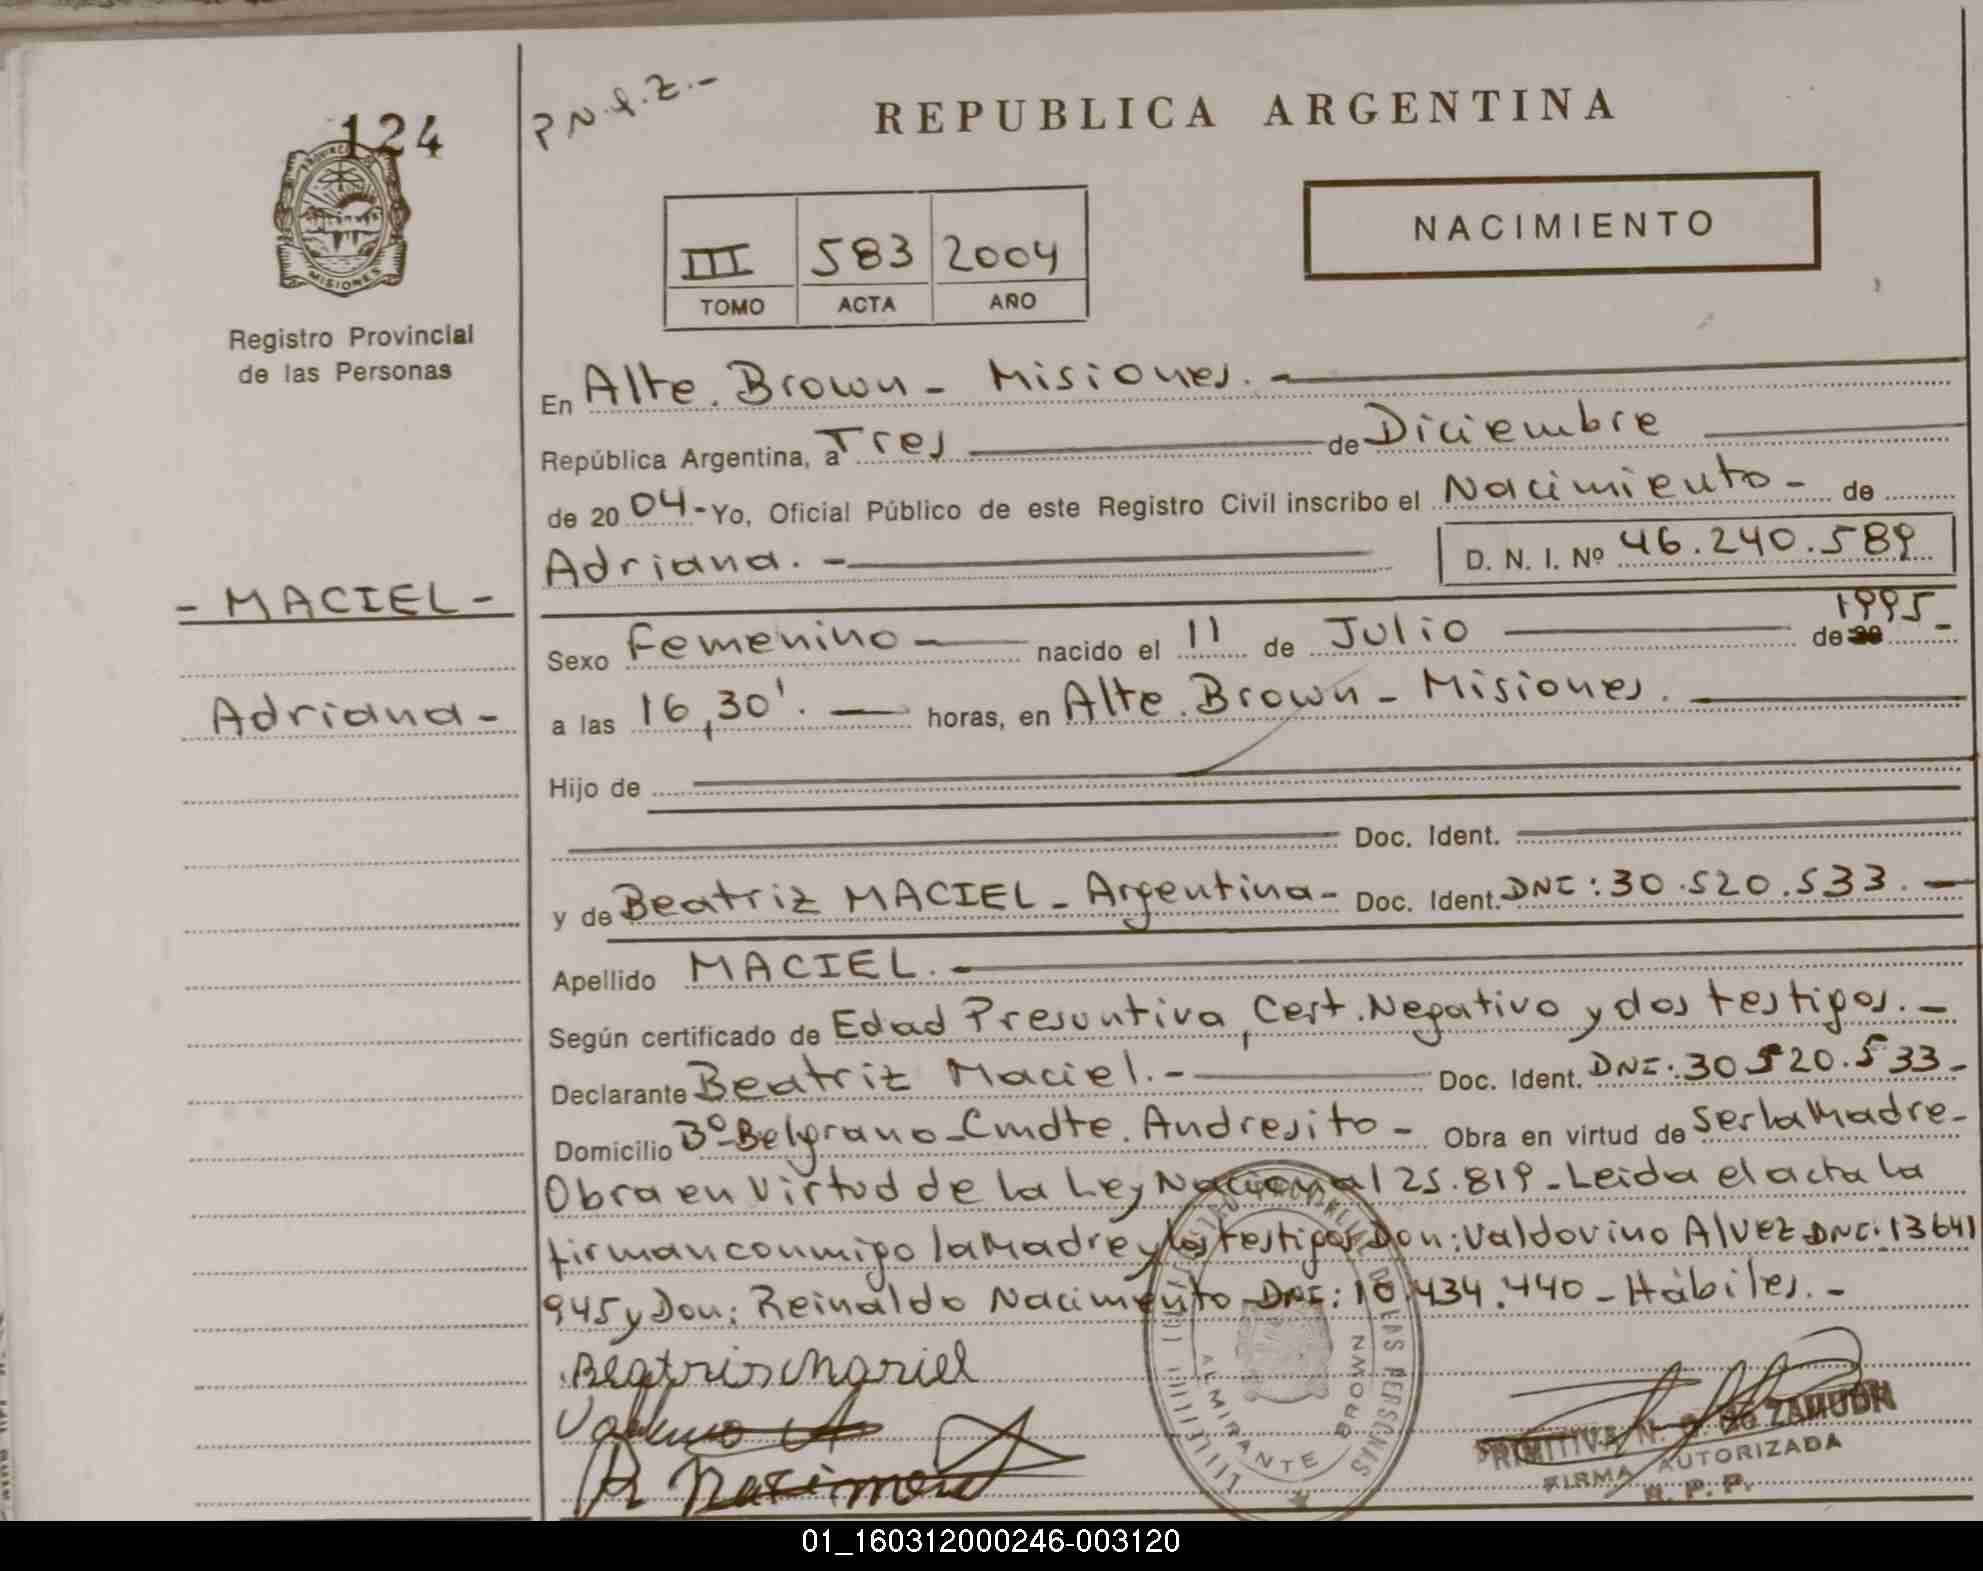 124
P.N.f.Z.-
REPUBLICA ARGENTINA
PROVINCIA DE
MISIONES
NACIMIENTO
III 583 2004
TOMO ACTA AÑO
Registro Provincial
de las Personas
En Alte. Brown - Misiones. -
República Argentina, a Tres de Diciembre
de 20 04 - Yo, Oficial Público de este Registro Civil inscribo el Nacimiento - de
Adriana. - D. N. I. Nº 46.240.589
- MACIEL -
Sexo Femenino - nacido el 11 de Julio de 1995 -
Adriana -
a las 16,30'. - horas, en Alte. Brown - Misiones. -
Hijo de
Doc. Ident.
y de Beatriz MACIEL - Argentina - Doc. Ident. DNI: 30.520.533. -
Apellido MACIEL. -
Según certificado de Edad Presuntiva, Cert. Negativo y dos testigos. -
Declarante Beatriz Maciel. - Doc. Ident. DNI: 30520.533 -
Domicilio Bº Belgrano - Cmdte. Andresito - Obra en virtud de Ser la Madre -
Obra en Virtud de la Ley Nacional 25.819 - Leida el acta la
firman conmigo la Madre y los testigos Don: Valdovino Alvez DNI: 13641
945 y Don: Reinaldo Nacimento DNI: 10.434.440 - Hábiles. -
Beatris Mariel
R Nacimento
DE LAS PERSONAS
ALMIRANTE BROWN
PRIMITIVA N. G. DE ZAMUDIO
FIRMA AUTORIZADA
R. P. P.
01_160312000246-003120